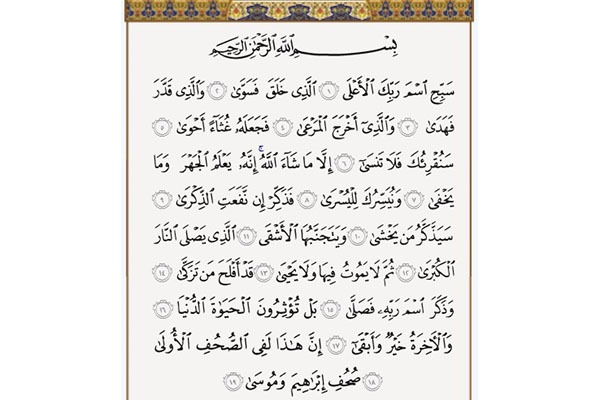 بِسْمِ اللَّهِ الرَّحْمَٰنِ الرَّحِيمِ
سَبِّحِ ٱسۡمَ رَبِّكَ ٱلۡأَعۡلَى ١ ٱلَّذِي خَلَقَ فَسَوَّىٰ ٢ وَٱلَّذِي قَدَّرَ
فَهَدَىٰ ٣ وَٱلَّذِيٓ أَخۡرَجَ ٱلۡمَرۡعَىٰ ٤ فَجَعَلَهُۥ غُثَآءً أَحۡوَىٰ ٥
سَنُقۡرِئُكَ فَلَا تَنسَىٰٓ ٦ إِلَّا مَا شَآءَ ٱللَّهُۚ إِنَّهُۥ يَعۡلَمُ ٱلۡجَهۡرَ وَمَا
يَخۡفَىٰ ٧ وَنُيَسِّرُكَ لِلۡيُسۡرَىٰ ٨ فَذَكِّرۡ إِن نَّفَعَتِ ٱلذِّكۡرَىٰ ٩
سَيَذَّكَّرُ مَن يَخۡشَىٰ ١٠ وَيَتَجَنَّبُهَا ٱلۡأَشۡقَى ١١ ٱلَّذِي يَصۡلَى ٱلنَّارَ
ٱلۡكُبۡرَىٰ ١٢ ثُمَّ لَا يَمُوتُ فِيهَا وَلَا يَحۡيَىٰ ١٣ قَدۡ أَفۡلَحَ مَن تَزَكَّىٰ ١٤
وَذَكَرَ ٱسۡمَ رَبِّهِۦ فَصَلَّىٰ ١٥ بَلۡ تُؤۡثِرُونَ ٱلۡحَيَوٰةَ ٱلدُّنۡيَا ١٦
وَٱلۡأٓخِرَةُ خَيۡرٞ وَأَبۡقَىٰٓ ١٧ إِنَّ هَٰذَا لَفِي ٱلصُّحُفِ ٱلۡأُولَىٰ
١٨ صُحُفِ إِبۡرَٰهِيمَ وَمُوسَىٰ ١٩